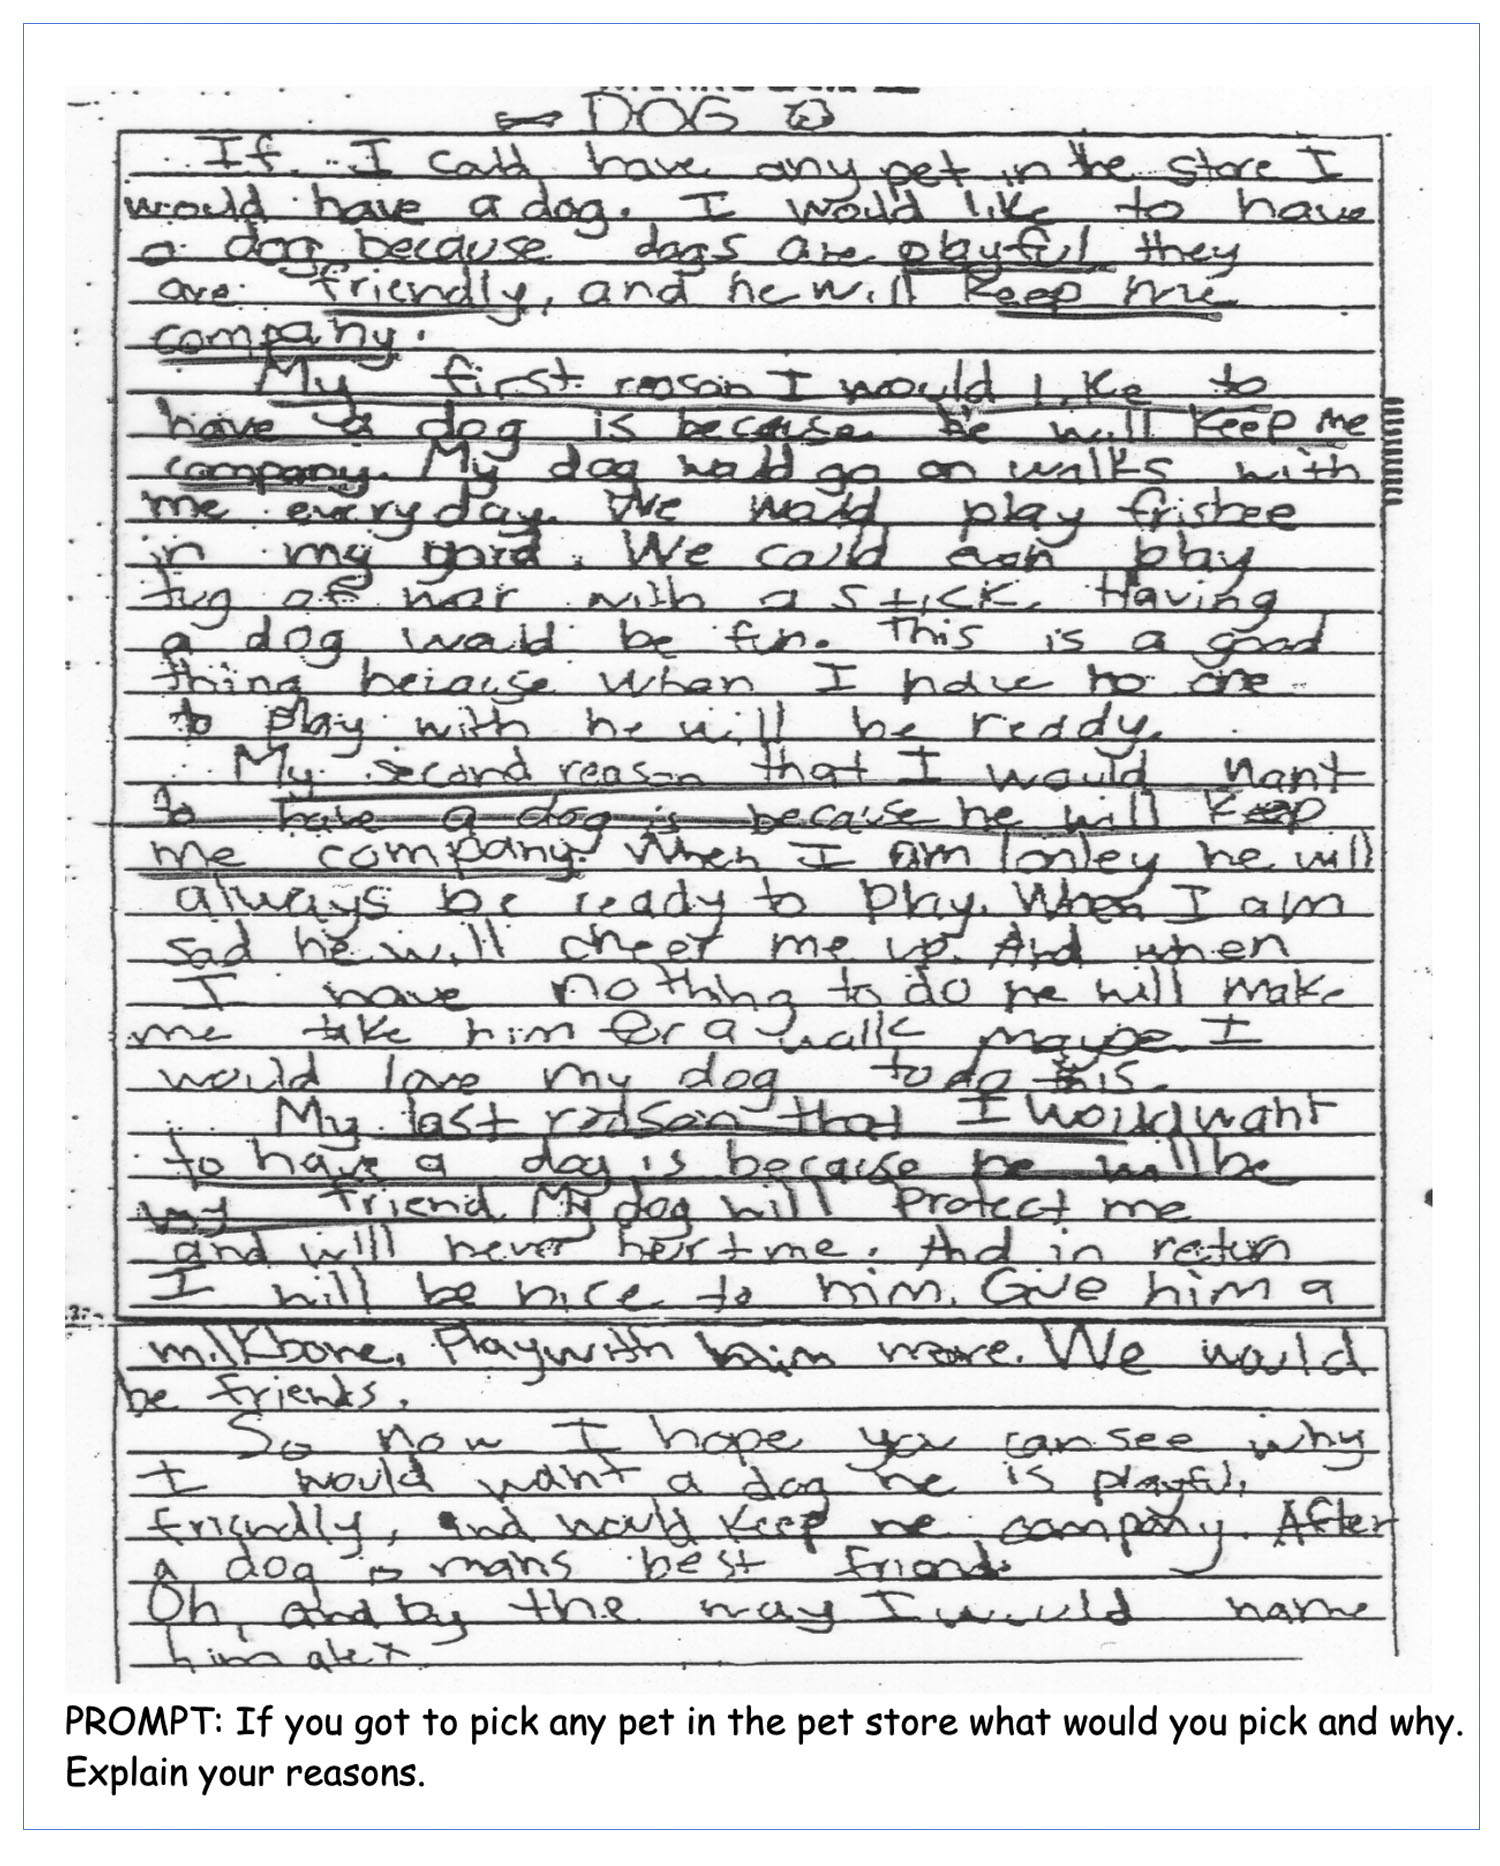 DOG
If I could have any pet in the store I
would have a dog. I would like to have
a dog because dogs are playful they
are friendly, and he will keep me
company.
My first reason I would like to
have a dog is because he will keep me
company. My dog would go on walks with
me everyday. We would play frisbee
in my yard. We could even play
tug of war with a stick. Having
a dog would be fun. This is a good
thing because when I have no one
to play with he will be ready.
My second reason that I would want
to have a dog is because he will keep
me company. When I am lonley he will
always be ready to play. When I am
sad he will cheer me up. And when
I have nothing to do he will make
me take him for a walk maybe I
would love my dog to do this.
My last reason that I would want
to have a dog is because he will be
my friend. My dog will protect me
and will never hert me. And in return
I will be nice to him. Give him a
milkbone. Play with him more. We would
be friends.
So now I hope you can see why
I would want a dog he is playful,
friendly, and would keep me company. After
a dog is mans best friend.
Oh and by the way I would name
him alex
PROMPT: If you got to pick any pet in the pet store what would you pick and why.
Explain your reasons.